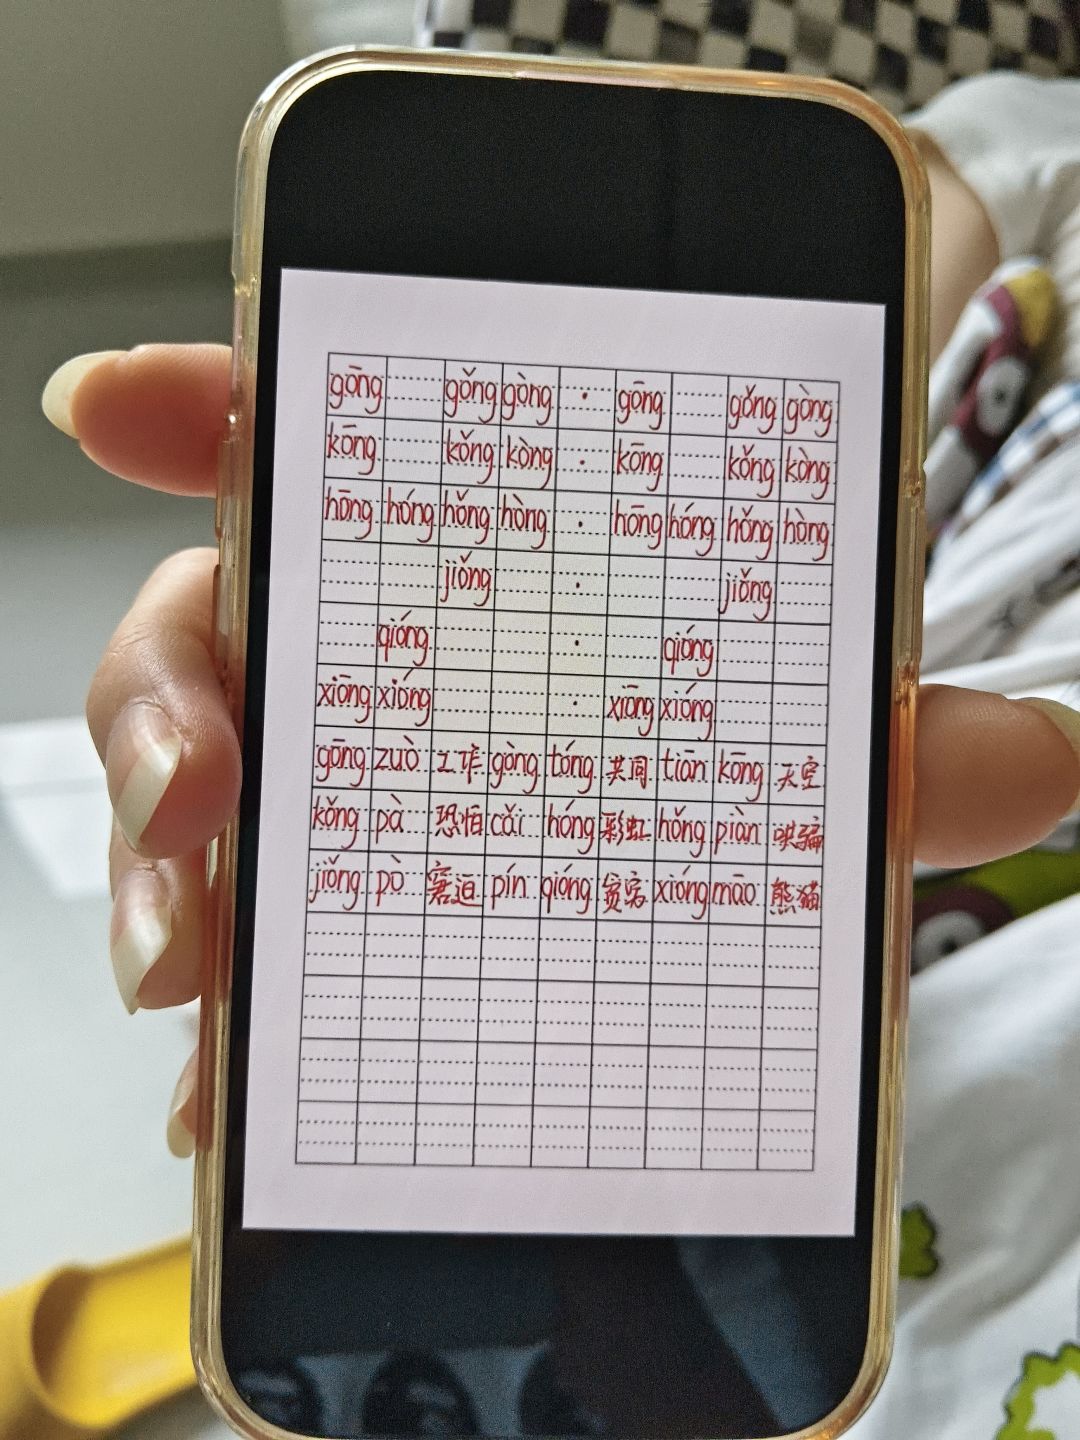 gōng gǒng gòng · gōng gǒng gòng
kōng kǒng kòng · kōng kǒng kòng
hōng hóng hǒng hòng · hōng hóng hǒng hòng
jiǒng · jiǒng
qióng · qióng
xiōng xióng · xiōng xióng
gōng zuò 工作 gòng tóng 共同 tiān kōng 天空
kǒng pà 恐怕 cǎi hóng 彩虹 hǒng piàn 哄骗
jiǒng pò 窘迫 pín qióng 贫穷 xióng māo 熊猫